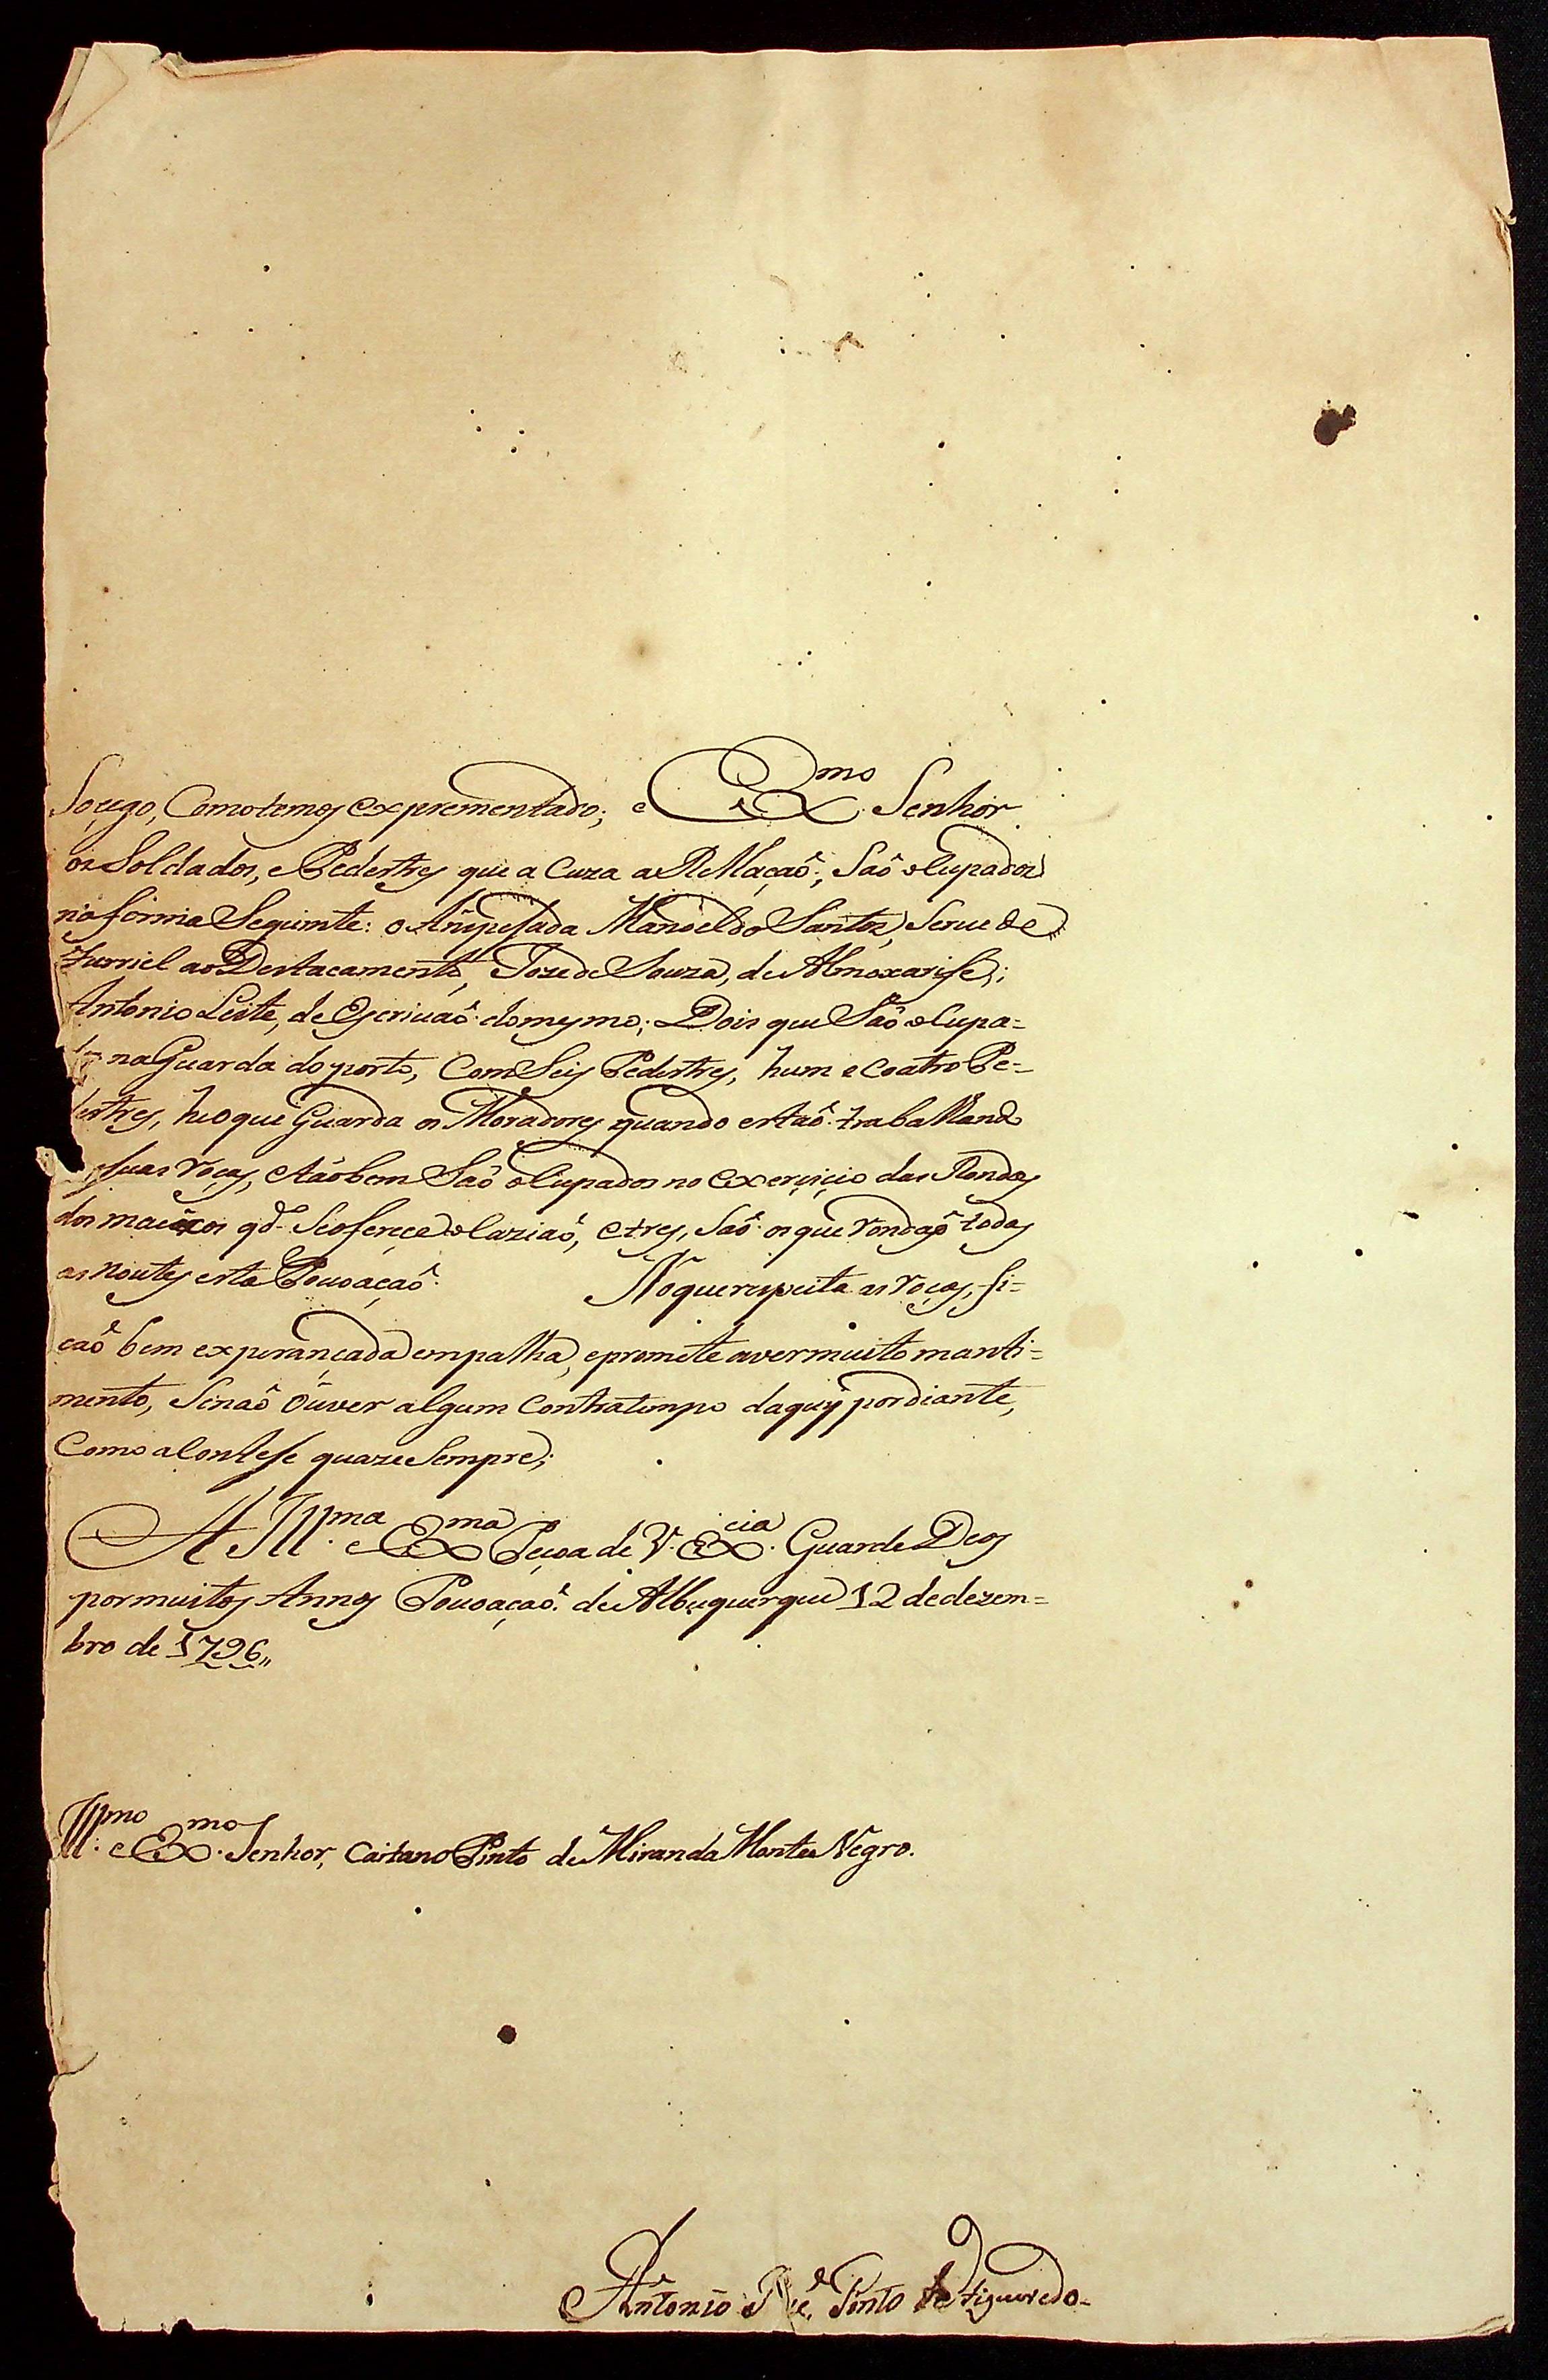 Soçego, Como temos exprementado; e Exmo. Senhor
os Soldados, e Pedestres que a Cuza a ReMaçaõ; Saõ oCupados
na forma Seguinte: o Anspesada Manoel do Santos, Serue de
Furriel ao Destacamento, Joze de Souza, de Almoxarife;
Antonio Leite, de Escriuaõ do mesmo; Dois que Saõ oCupa=
dos na Guarda do porto, Com Seis Pedestres, hum e Coatro Pe=
destres, he o que Guarda os Moradores quando estaõ trabalhando
suas roças, e tãobem Saõ oCupados no exerçiçio das Rondas
dos macixos qdo. Se ofereçe oCaziaõ, e tres, Saõ os que rondaõ todas
as noutes esta Pouoaçaõ. No que respeita as roças, fi=
caõ bem experançada em palha, e promete aver muito manti=
mento, Se naõ ouver algum Contratempo daquy por diante,
Como aContese quaze Sempre;
A Illma. e Exma. Peçoa de V. Excia. Guarde Deos
por muitos Annos Pouoaçaõ de Albuquerque 12 de dezem=
bro de 1796,,
Illmo. e Exmo. Senhor, Caitano Pinto de Miranda Monte Negro.
Antonio Je. Pinto de Figueiredo